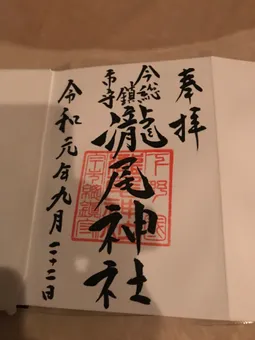 奉拝
今市総鎮守
瀧尾神社
令和元年九月二十二日
下野國